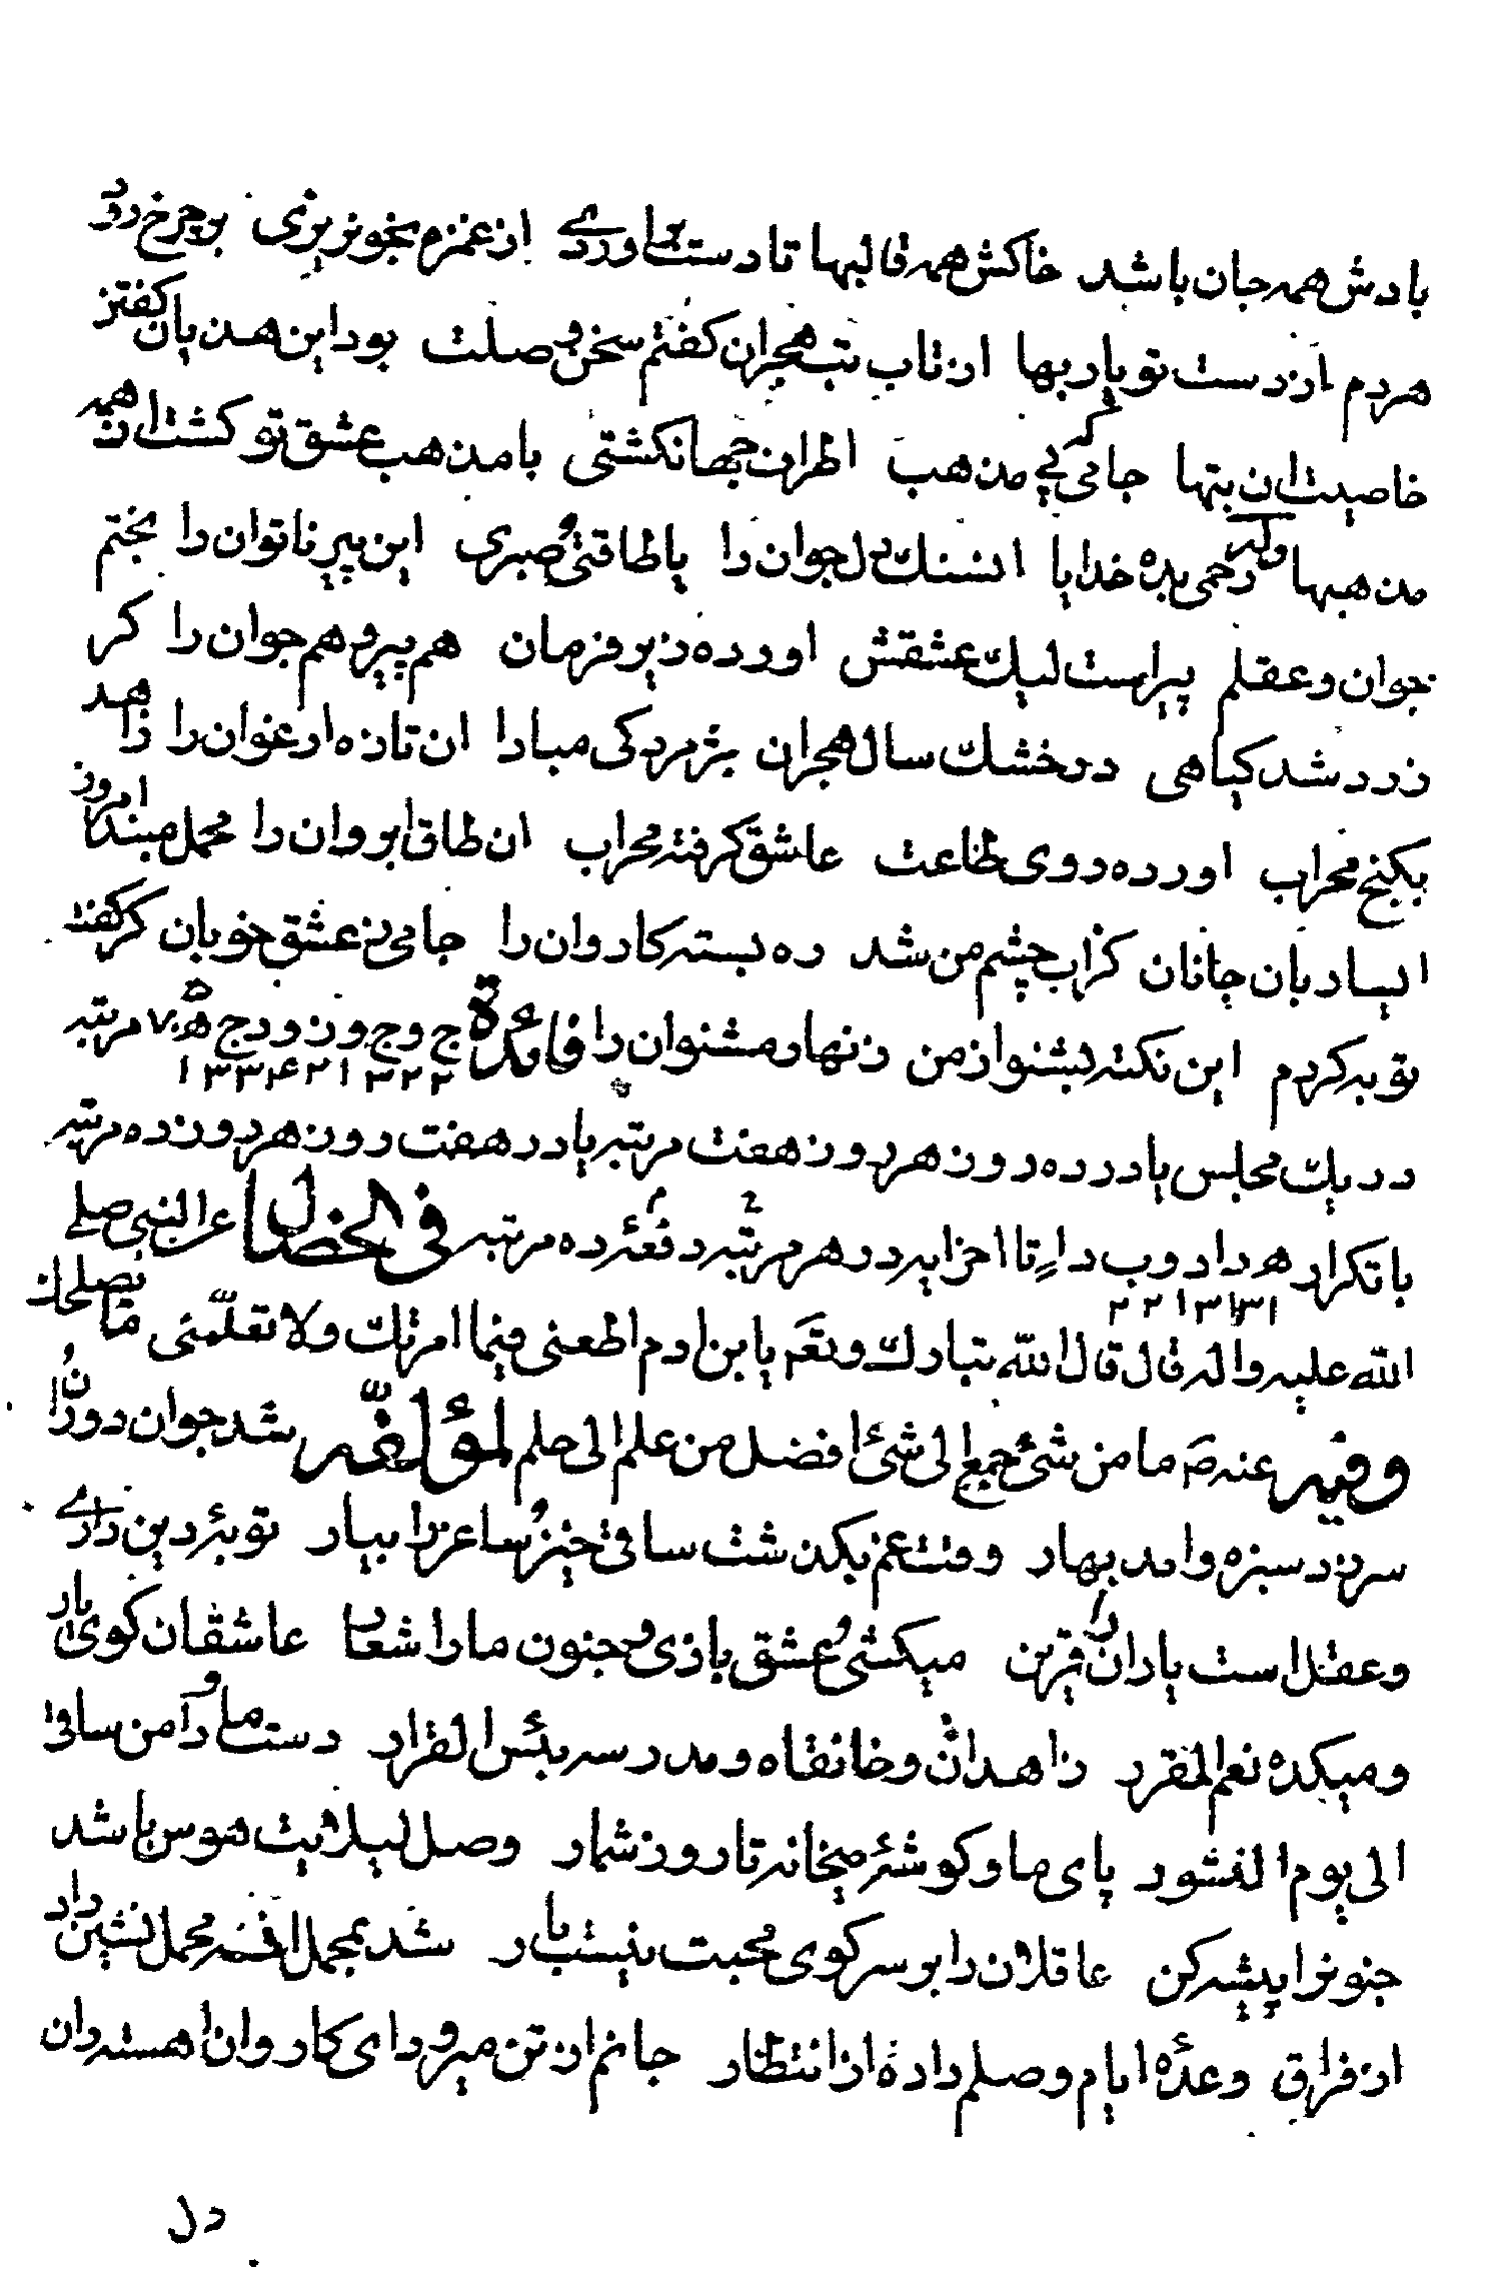 بادش همه جان باشد خاکش همه قالبها تا دست براوردی از غمزه بخونریزی بر چرخ رود
هردم از دست تو یاربها از تاب تب هجران کفتم سخن وصلت بود این هذیان کفتن
خاصیت ان تبها جامی که پی مذهب اطراف جهان کشتی با مذهب عشق تو کشت از همه
مذهبها وله رحمی بده خدایا ان سنك دل جوان را یا طاقتی و صبری این پیر ناتوان را بختم
جوان و عقلم پیراست لیك عشقش اورده زیر فرمان هم پیر و هم جوان را کر
زرد شد کیاهی در خشك سال هجران پژمردکی مبادا ان تازه ارغوان را زاهد
بکنج محراب اورده روی طاعت عاشق کرفته محراب ان طاق ابروان را محمل مبند امروز
ای ساربان جانان کز اب چشم من شد ره بسته کاروان را جامی ز عشق خوبان کر کفت
توبه کردم این نکته بشنو از من زنهار مشنوان را فائدة ج وج وز ودج ه ۷۰ مرتبه
۲ ۲ ۳ ۱ ۲ ۴ ۳ ۳ ۱
در یك مجلس یا در ده روز هر روز هفت مرتبه یا در هفت روز هر روز ده مرتبه
با تکرار ه دا د وب دا تا اخر ایه در هر مرتبه دفعهٔ ده مرتبه فی الخصال عن النبی صلی
۱ ۳ ۱ ۳ ۱ ۲ ۲
الله علیه واله قال قال الله تبارك وتعه یابن ادم اطعنی فیما امرتك ولا تعلّمنی ما یصلحك
وفیه عنه ص ما من شیء جمع الی شیء افضل من علم الی حلم لمؤلفه شد جوان دوران و
سر زد سبزه وامد بهار وقت غم بکذشت ساقی خیز و ساغر را بیار توبهٔ دین داری
وعقل است یاران را قرین میکشی و عشق بازی و جنون ما را شعار عاشقان کوی یار
ومیکده نعم المقر زاهدان و خانقاه و مدرسه بئس القرار دست ما و دامن ساقی
الی یوم النشور پای ما و کوشهٔ میخانه تا روز شمار وصل لیلایت هوس باشد
جنونرا پیشه کن عاقلان را بر سر کوی محبت نیست بار شد بمجمل افـ ـه محمل نشین داد
از فراق وعدهٔ ایام وصلم داده از انتظار جانم از تن میرود ای کاروان اهسته ران
دل